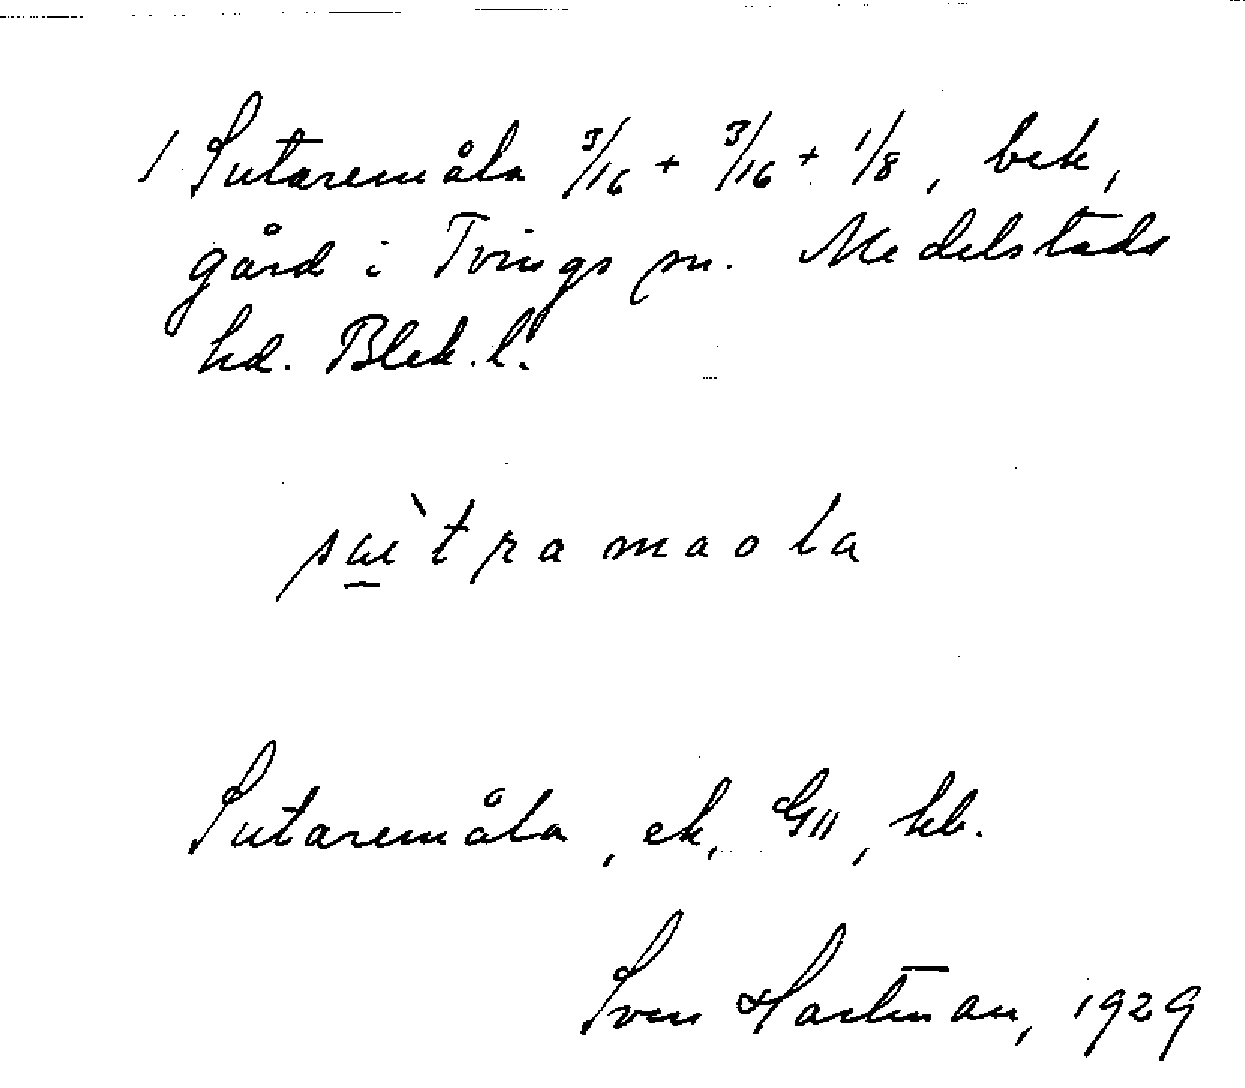 1 Sutaremåla 3/16 + 3/16 + 1/8, bek,
gård i Tvings sn. Medelstads
hd. Blek. l.
sùtramaola
Sutaremåla, ek, GII, hb.
Sven Hartman, 1929